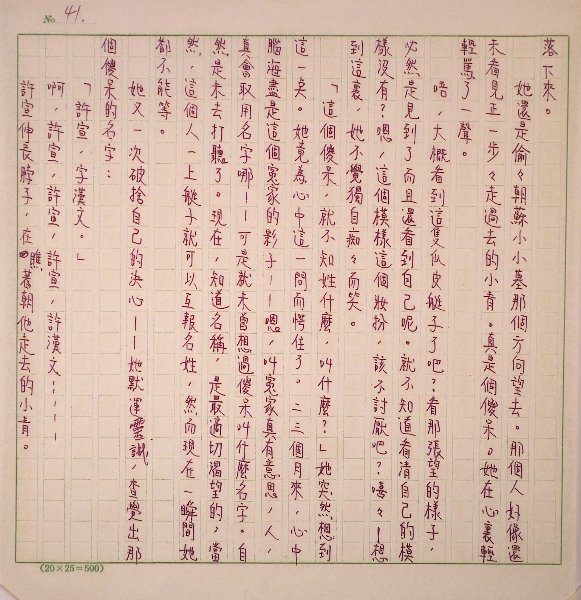 No. 41.
落下來。
她還是偷々朝蘇小小墓那個方向望去。那個人好像還
未看見正一步々走過去的小青。真是個傻呆。她在心裏輕
輕罵了一聲。
唔，大概看到這隻瓜皮艇子了吧？看那張望的樣子，
必然是見到了而且還看到自己呢。就不知道看清自己的模
樣沒有？嗯，這個模樣這個妝扮，該不討厭吧？嘻々－想
到這裏，她不覺獨自痴々而笑。
「這個傻呆，就不知姓什麼，叫什麼？」她突然想到
這一矣。她竟為心中這一問而愕住了。二三個月來，心中
腦海盡是這個冤家的影子－－嗯，叫冤家真有意思，人，
真會取用名字哪－－可是就未曾想過傻呆叫什麼名字。自
然是未去打聽了。現在，知道名稱，是最適切渴望的，當
然，這個人一上艇子就可以互報名姓，然而現在一瞬間她
都不能等。
她又一次破捨自己的決心－－她默運靈識，查覺出那
個傻呆的名字：
「許宣，字漢文。」
啊，許宣，許宣，許宣，許漢文……－－
許宣伸長脖子，在瞧著朝他走去的小青。
(20×25=500)